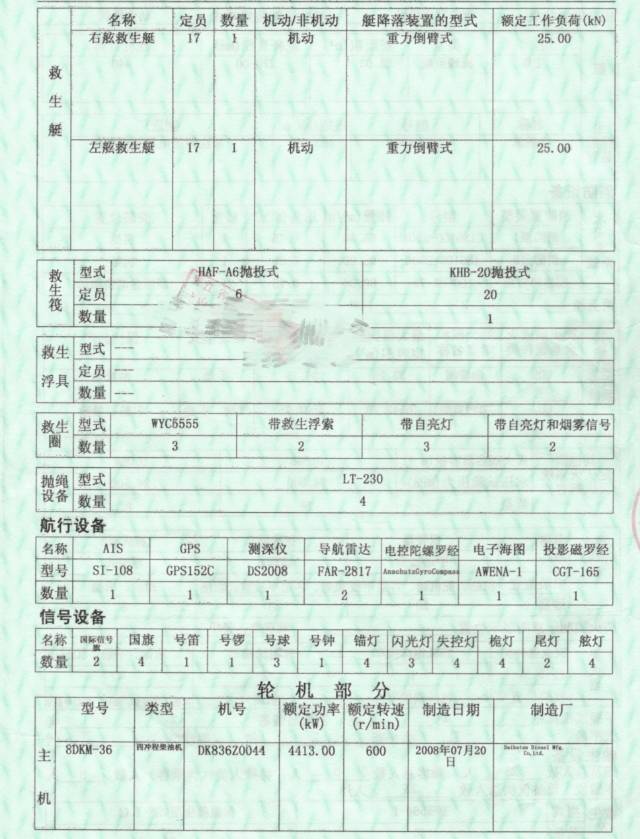 名称 定员 数量 机动/非机动 艇降落装置的型式 额定工作负荷(kN)
救生艇
右舷救生艇 17 1 机动 重力倒臂式 25.00
左舷救生艇 17 1 机动 重力倒臂式 25.00
救生筏
型式 HAF-A6抛投式 KHB-20抛投式
定员 6 20
数量 1
救生浮具
型式 ---
定员 ---
数量 ---
救生圈
型式 WYC5555 带救生浮索 带自亮灯 带自亮灯和烟雾信号
数量 3 2 3 2
抛绳设备
型式 LT-230
数量 4
航行设备
名称 AIS GPS 测深仪 导航雷达 电控陀螺罗经 电子海图 投影磁罗经
型号 SI-108 GPS152C DS2008 FAR-2817 AnschutzGyroCompass AWENA-1 CGT-165
数量 1 1 1 2 1 1 1
信号设备
名称 国际信号旗 国旗 号笛 号锣 号球 号钟 锚灯 闪光灯 失控灯 桅灯 尾灯 舷灯
数量 2 4 1 1 3 1 4 3 4 4 2 4
轮机部分
型号 类型 机号 额定功率(kW) 额定转速(r/min) 制造日期 制造厂
主机
8DKM-36 四冲程柴油机 DK836Z0044 4413.00 600 2008年07月20日 Daihatsu Diesel Mfg. Co,Ltd.